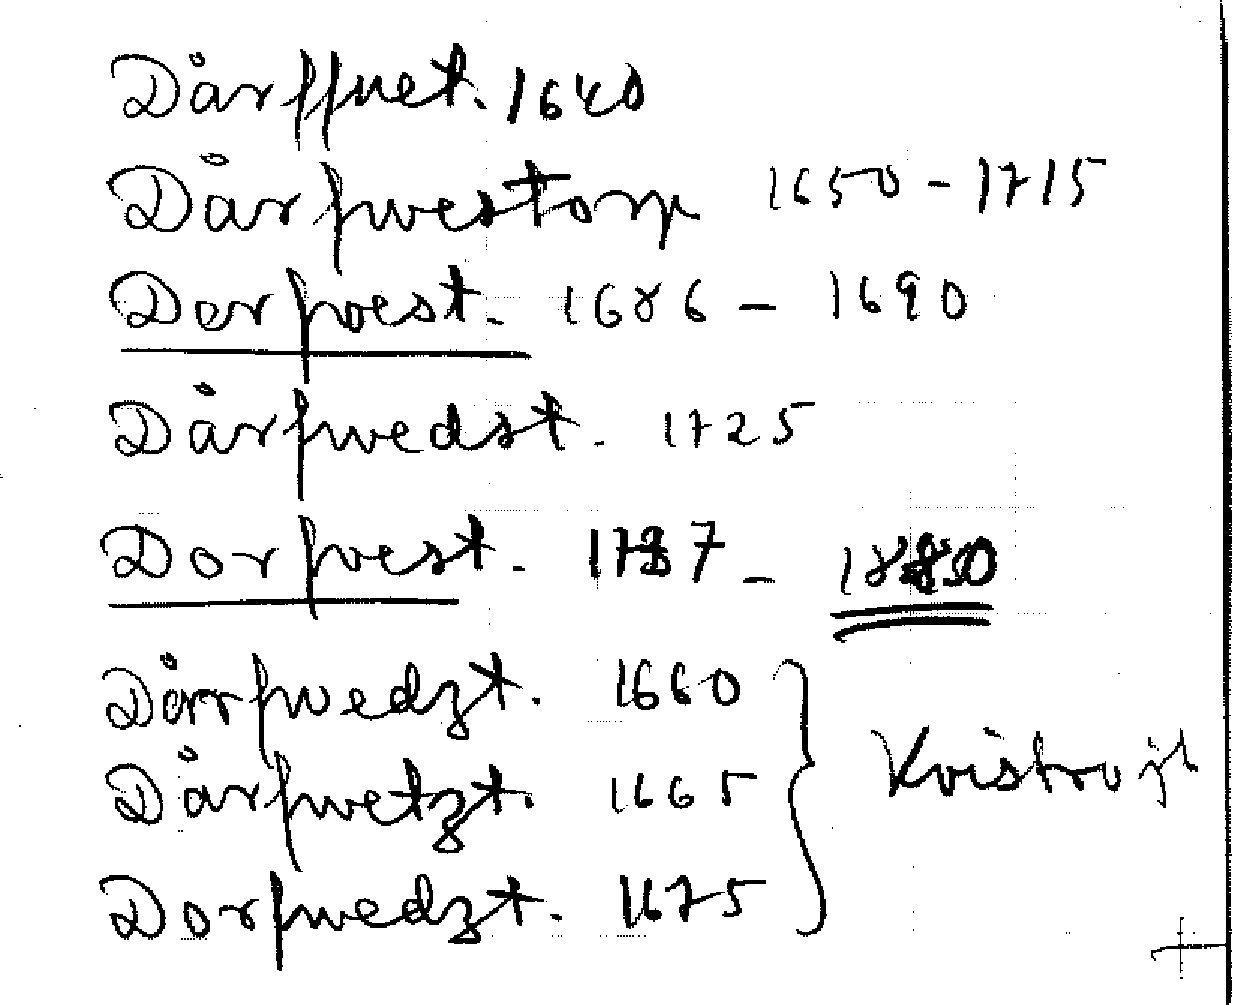 Dårffuet. 1640
Dårfwestorp 1650-1715
Dorfvest. 1686 - 1690
Dårfwedst. 1725
Dorfvest. 1787 -
Dårfwedzt. 1660
Dårfwetzt. 1665
Dorfwedzt. 1675